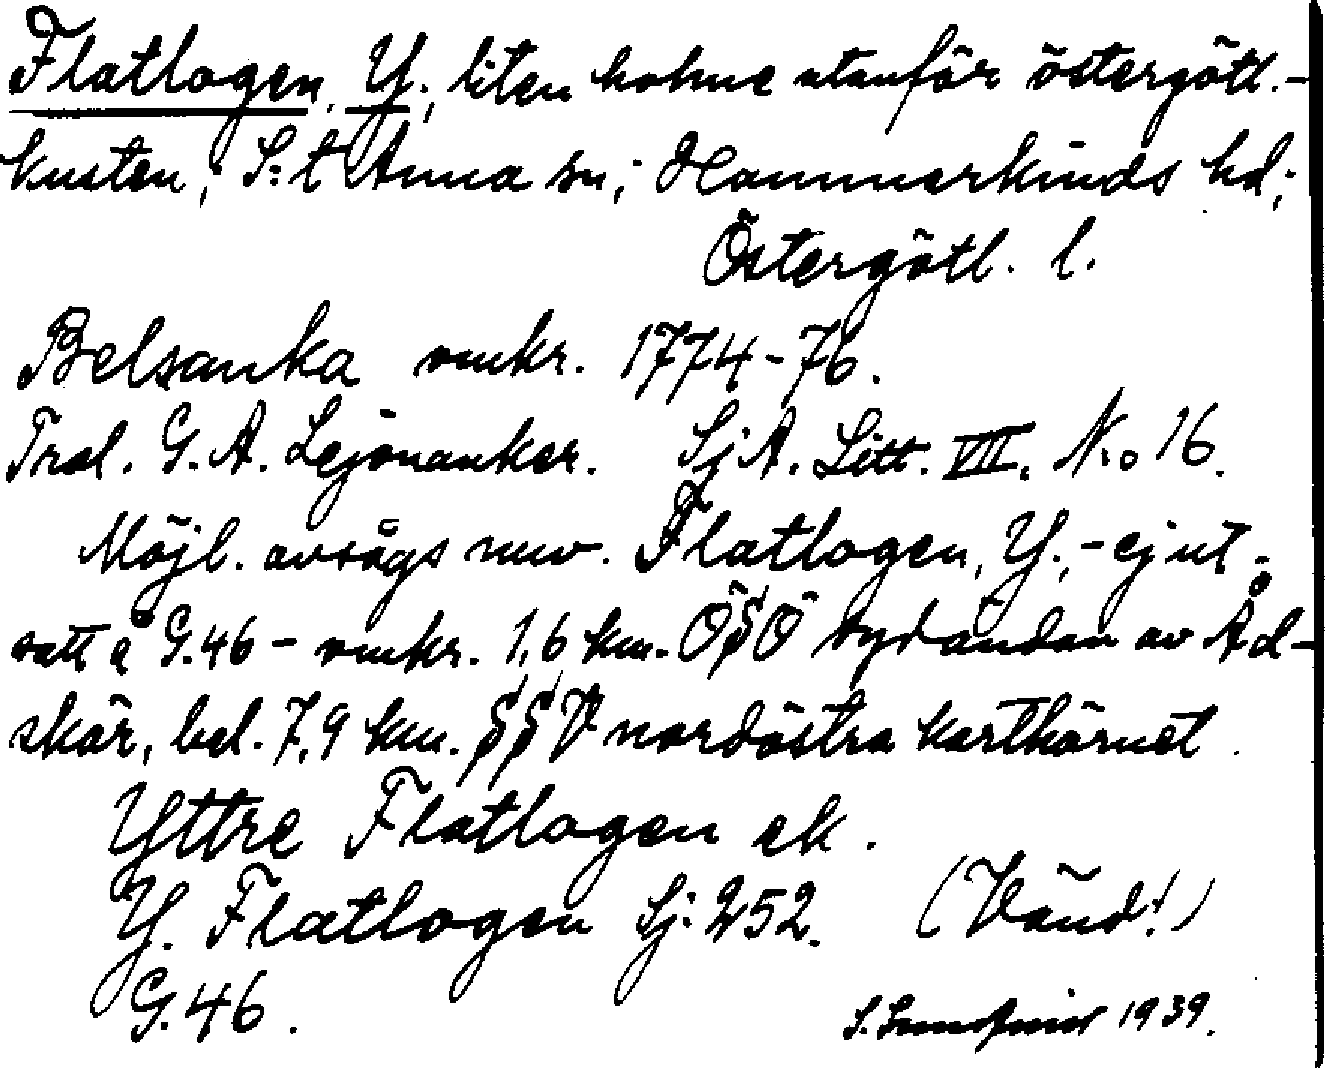 Flatlogen, Y.; liten holme utanför östergötl.-
kusten; S:t Anna sn; Hammarkinds hd;
Östergötl. l.
Belsanka omkr. 1774-76.
Trol. G. A. Lejonanker. SjA. Litt. VII. No 16.
Möjl. avsågs nuv. Flatlogen, Y., - ej ut-
satt å G.46 - omkr. 1,6 km. ÖSÖ sydändan av Åd-
skär, bel. 7,9 km. SSV nordöstra karthörnet.
Yttre Flatlogen ek.
Y. Flatlogen Sj: 252. (Vänd!)
G.46. S. 1939.